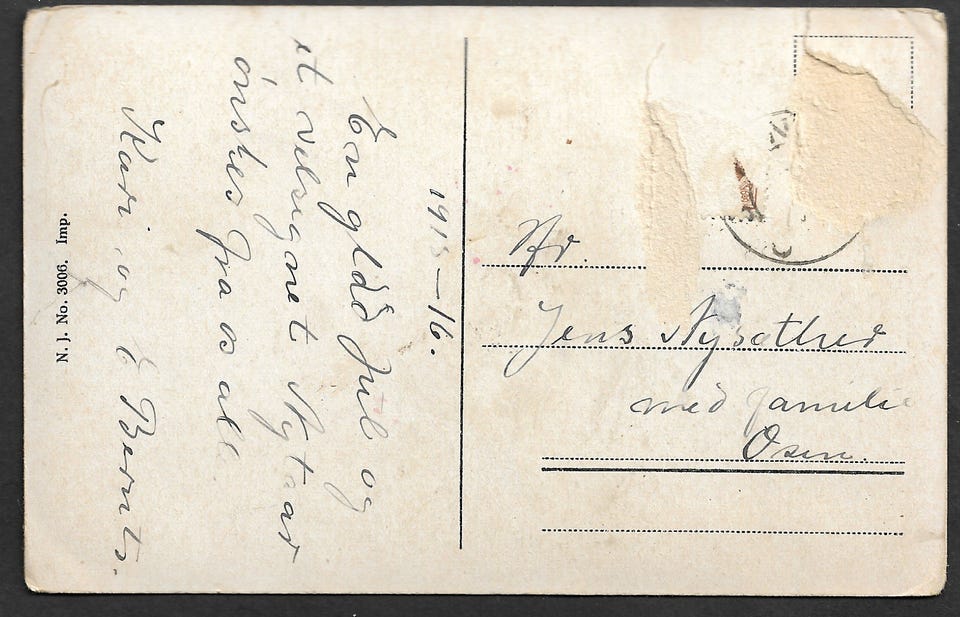 1915–16.
En glad Jul og
et velsignet Nytaar
ønskes fra os all
Kari og E Bernts.
N. J. No. 3006. Imp.
Hr.
Jens Nysæther
med familie
Osen.